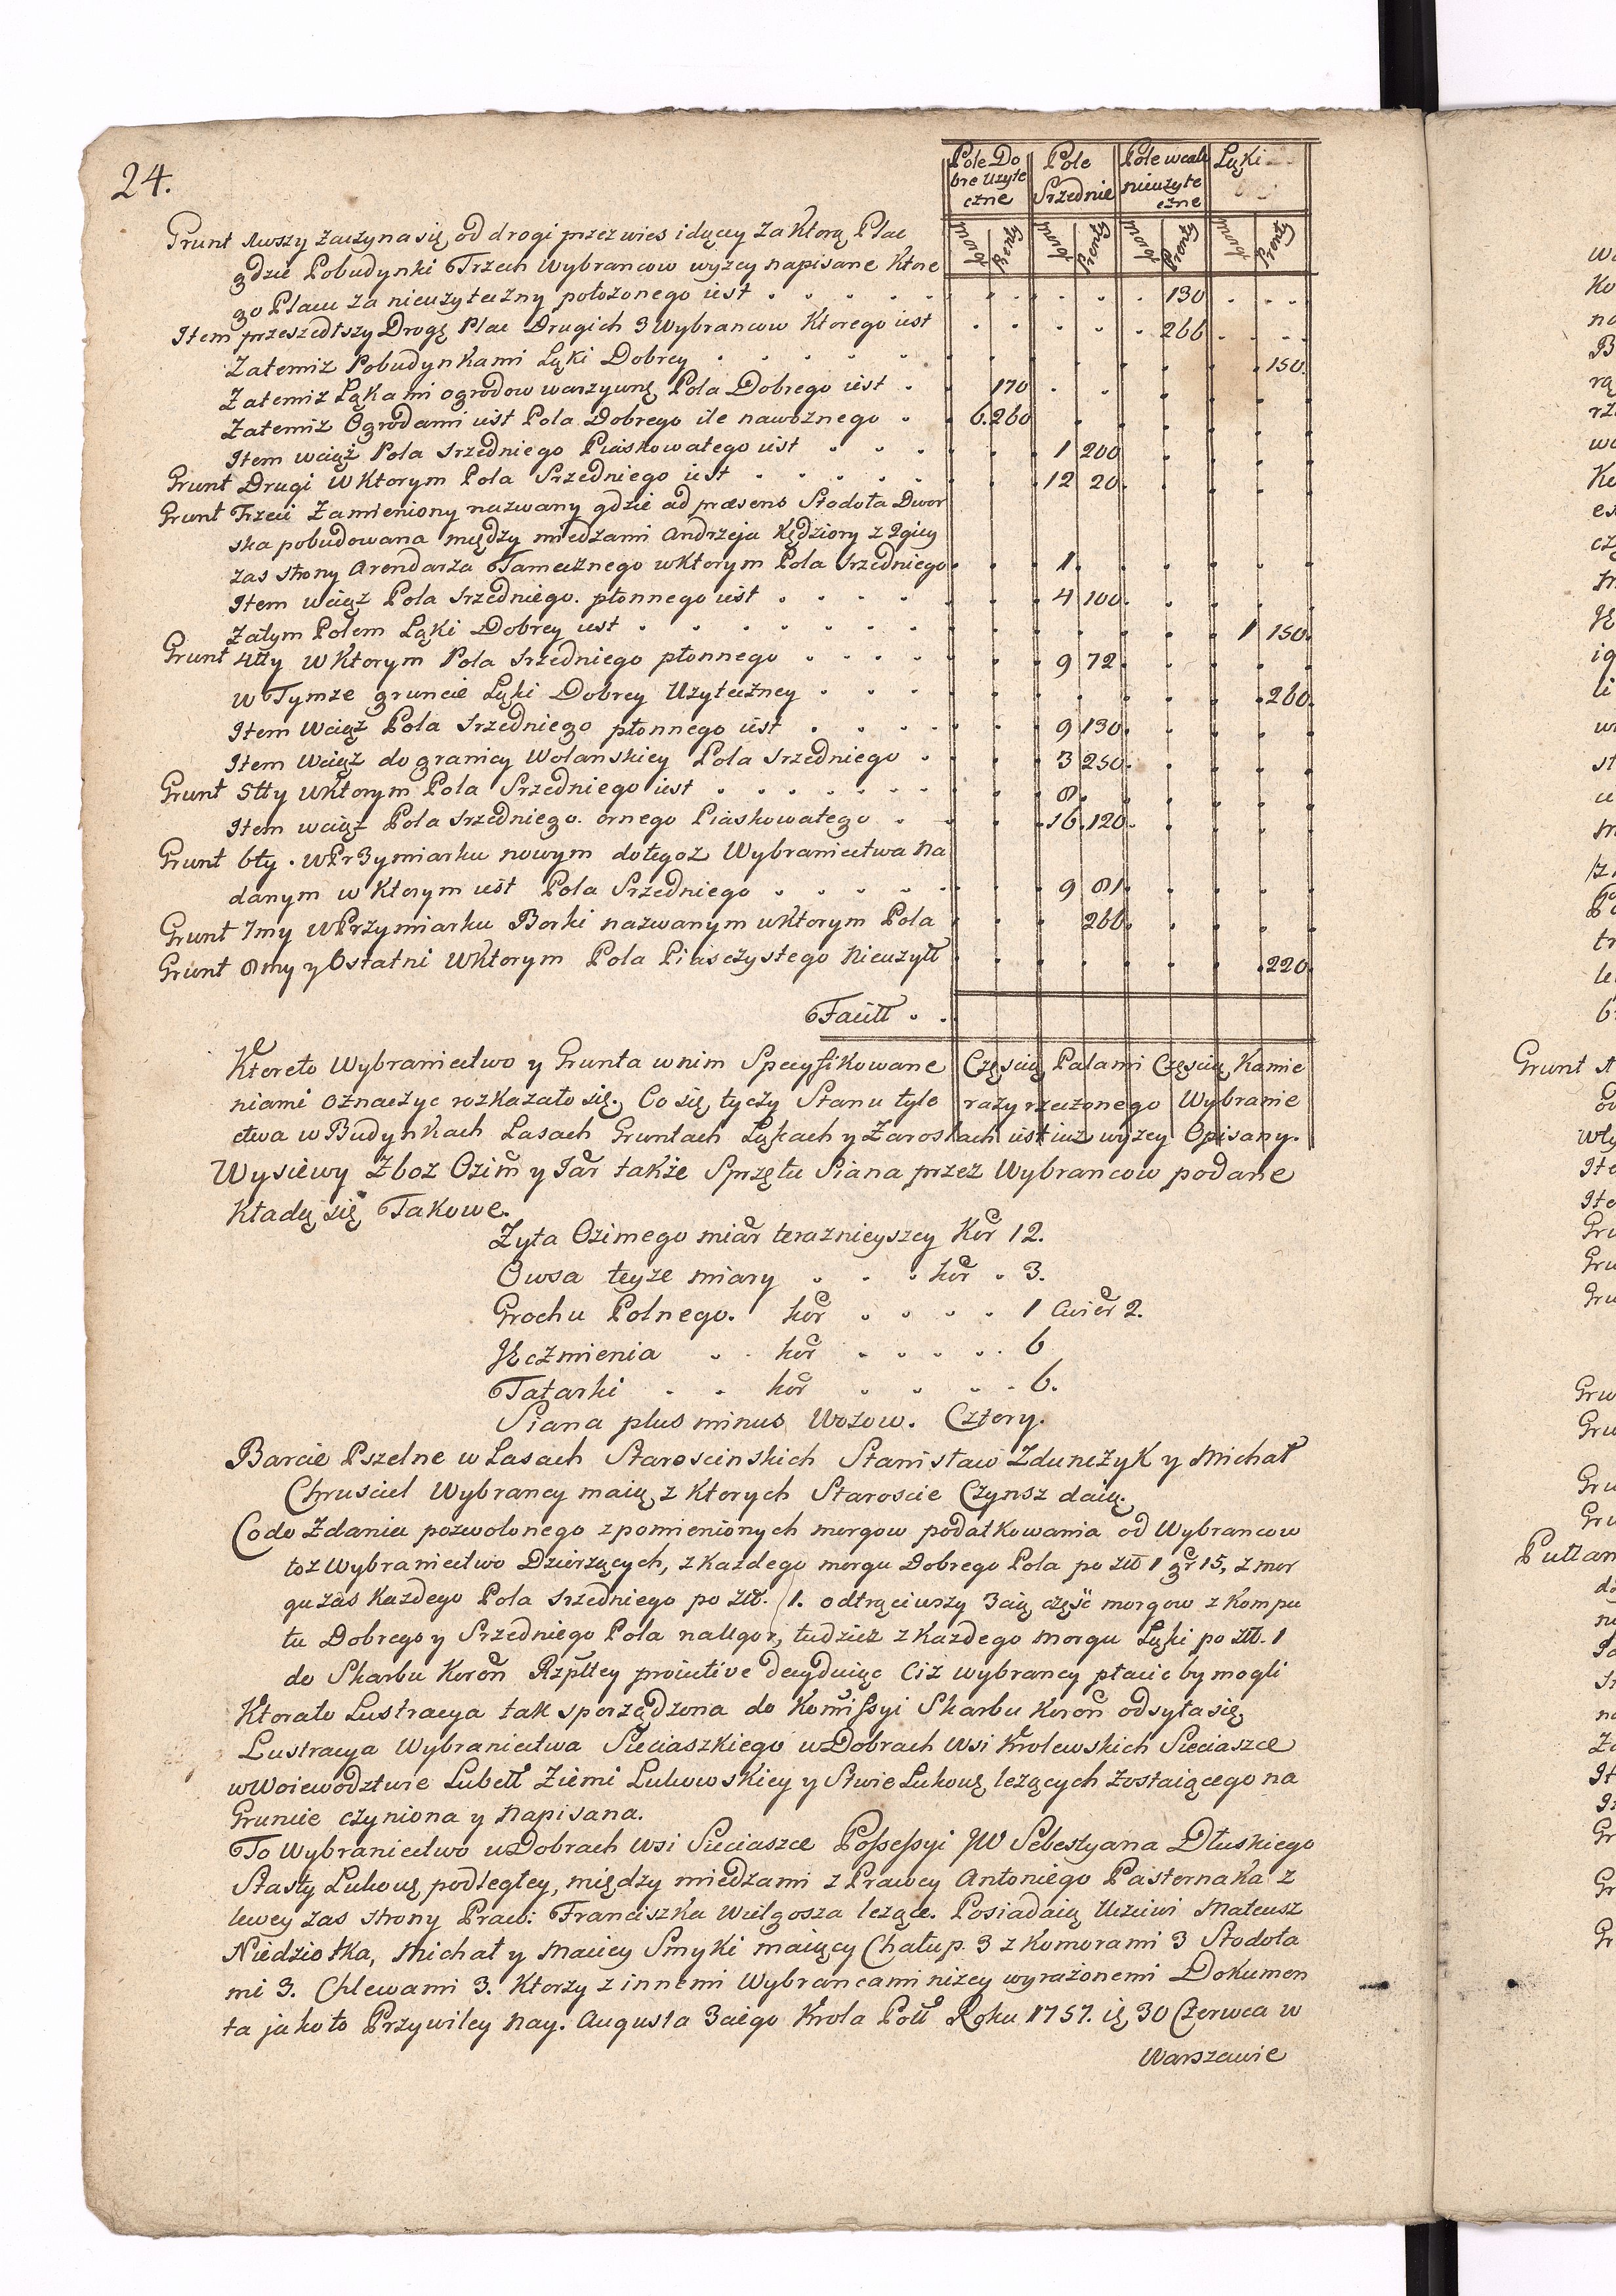 24.
Pole Do Pole Pole wcale Łąki
bre Uzyte Srzednie nieuzyte
czne czne
Morgi Pręty Morgi Pręty Morgi Pręty Morgi Pręty
Grunt 1wszy zaczyna się od drogi przez wies idącey za ktorą Plac
gdzie Pobudynki Trzech Wybrancow wyzey napisane Ktore
go Placu za nieuzyteczny położonego iest . . . . . 130
Item przeszedłszy Drogę Plac Drugich 3 Wybrancow Ktorego iest 266
Zatemiz Pobudynkami Łąki Dobrey . . . . . 150.
Zatemiz Łąkami ogrodow warzywnę Pola Dobrego iest . 170
Zatemiz Ogrodami iest Pola Dobrego ile nawoznego . 6. 260
Item wciąż Pola Srzedniego Piaskowatego iest . . . 1 200
Grunt Drugi w Ktorym Pola Srzedniego iest . . . . . 12 20
Grunt Trzeci Zamieniony nazwany gdzie ad præsens Stodoła Dwor
ska pobudowana między miedzami Andrzeja Kędziory z 2giey
zas strony Arendarza Tamecznego w Ktorym Pola Srzedniego 1.
Item wciąż Pola Srzedniego. płonnego iest . . . . 4 100
Zatym Polem Łąki Dobrey iest . . . . . . . 1 150.
Grunt 4tty w Ktorym Pola Srzedniego płonnego . . . . 9 72
w Tymze gruncie Łąki Dobrey Uzyteczney . . . 260.
Item Wciąż Pola Srzedniego płonnego iest . . . . 9 130
Item Wciąż do granicy Wolanskiey Pola Srzedniego . 3 250
Grunt 5tty w Ktorym Pola Srzedniego iest . . . . . . . 8.
Item wciąż Pola Srzedniego. ornego Piaskowatego . . 16. 120
Grunt 6ty. w Przymiarku nowym do tegoz Wybraniectwa Na
danym w Ktorym iest Pola Srzedniego . . . . . 9 81
Grunt 7my w Przymiarku Borki nazwanym w Ktorym Pola 266
Grunt 8my y Ostatni w Ktorym Pola Piasczystego Nieuzytt 220
Facitt . .
Ktoreto Wybraniectwo y Grunta w nim Specyfikowane Częscią Palami Częscią Kamie
niami oznaczyc rozkazało się. Co się tyczy Stanu tyle razy rzeczonego Wybranie
ctwa w Budynkach Lasach Gruntach Łąkach y Zaroslach iest iuz wyzey Opisany.
Wysiewy Zboz Ozim y Jar także Sprzętu Siana przez Wybrancow podane
Kładę się Takowe.
Zyta Ozimego miar terazniejszey Kor 12.
Owsa teyze miary . . . kor . 3.
Grochu Polnego. kor . . . . 1 cwier 2.
JĘczmienia . . kor . . . . . 6
Tatarki . . kor . . . . 6.
Siana plus minus Wozow. Cztery.
Barcie Pszelne w Lasach Staroscinskich Stanisław Zdunczyk y Michał
Chrusciel Wybrancy maią z Ktorych Staroscie Czynsz daią.
Co do Zdania pozwolonego z pomienionych morgow podatkowania od Wybrancow
toz Wybraniectwo Dzierzących, z Kazdego morgu Dobrego Pola po złł 1 gr 15, z mor
gu zas Kazdego Pola srzedniego po złł. 1. odtrąciwszy 3cią część morgow z Kompu
tu Dobrego y Srzedniego Pola na Ugor, tudziez z Kazdego morgu Łąki po złł. 1
do Skarbu Koron Rzpltey decyduiąc Ciz wybrancy płacic by mogli
Ktorato Lustracya tak sporządzona do Kommissyi Skarbu Koron odsyła się
Lustracya Wybraniectwa Sieciaszkiego w Dobrach Wsi Krolewskich Sieciaszce
w Woiewodztwie Lubell Ziemi Lukowskiey y Stwie Lukowę lezących zostaiącego na
Gruncie czyniona y Napisana.
To Wybraniectwo w Dobrach Wsi Sieciaszce Possessyi JW Sebestyana Dłuskiego
Stasty Lukowę podległey, między miedzami z Prawey Antoniego Pasternaka z
lewey zas strony Prac: Franciszka Wielgosza lezące. Posiadaią Uczciwi Mateusz
Niedziołka, Michał y Maciey Smyki maiący Chałup. 3 z Komorami 3 Stodoła
mi 3. Chlewami 3. Ktorzy z innemi Wybrancami nizey wyrażonemi Dokumen
ta jako to Przywiley Nay. Augusta 3ciego Krola Poll Roku 1757. ię 30 Czerwca w
Warszawie